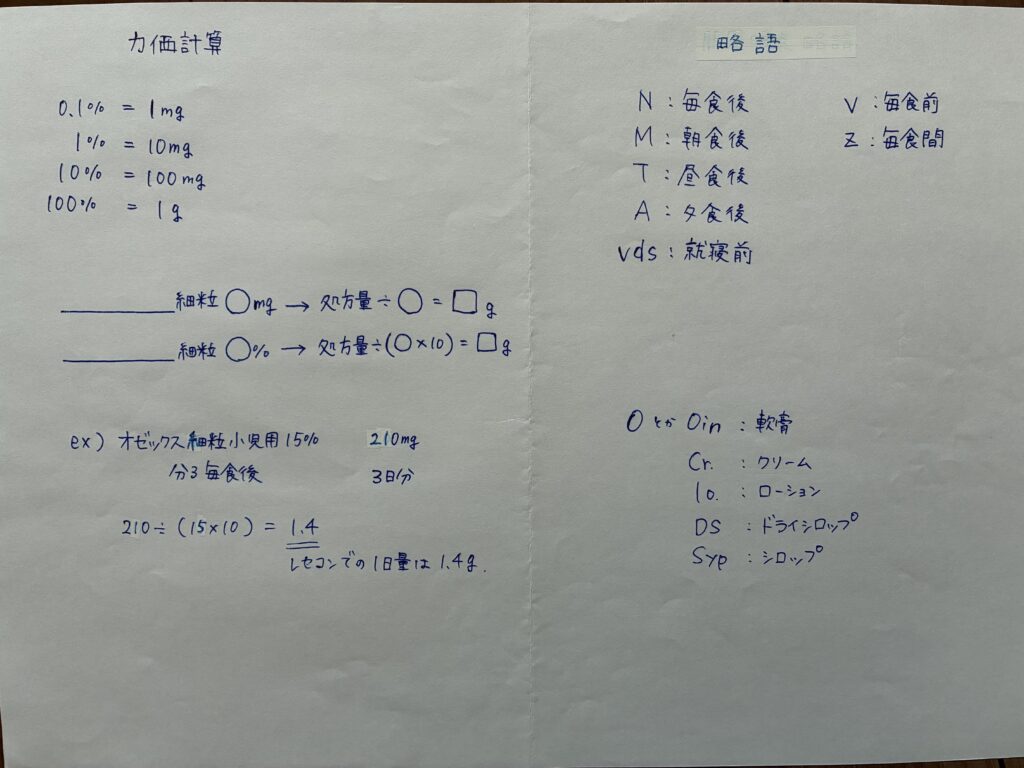 力価計算
0.1% = 1mg
1% = 10mg
10% = 100mg
100% = 1g
______細粒○mg → 処方量÷○=□g
______細粒○% → 処方量÷(○×10)=□g
ex) オゼックス細粒小児用15% 210mg
分3毎食後 3日分
210÷(15×10) = 1.4
レセコンでの1日量は1.4g.
略語
N:毎食後 V:毎食前
M:朝食後 Z:毎食間
T:昼食後
A:夕食後
vds:就寝前
OとかOin:軟膏
Cr.:クリーム
lo.:ローション
DS:ドライシロップ
Syp:シロップ